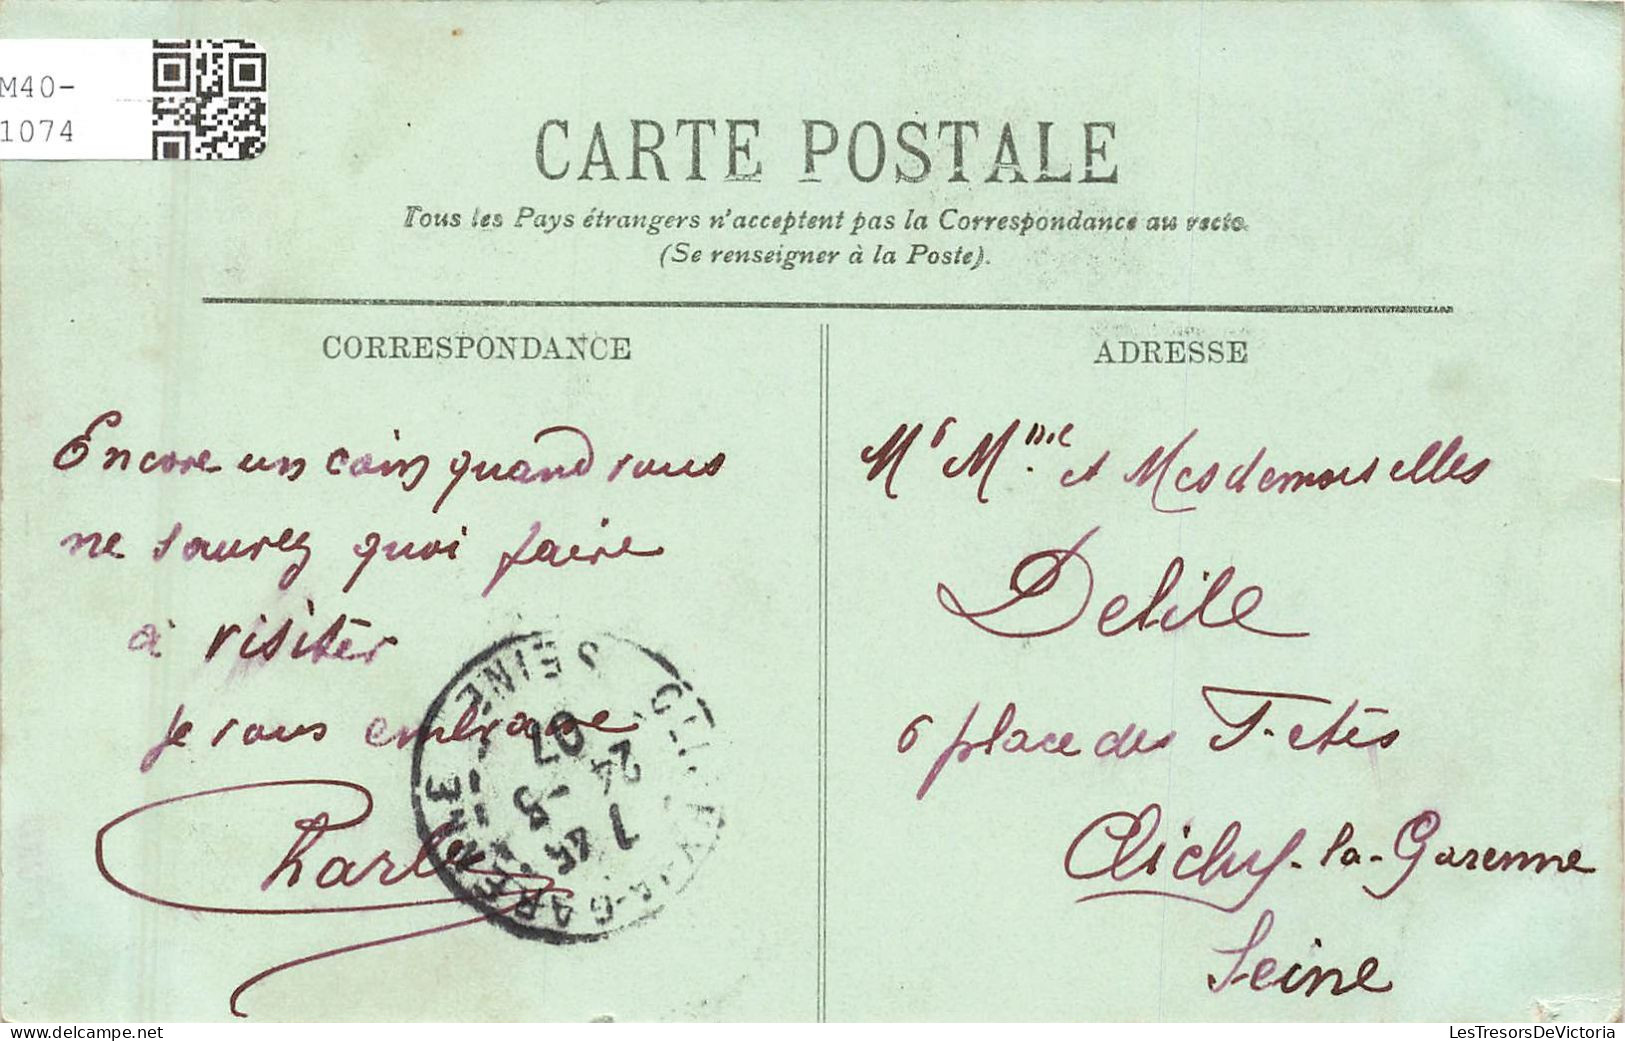 M40-
1074
CARTE POSTALE
Tous les Pays étrangers n'acceptent pas la Correspondance au recto.
(Se renseigner à la Poste).
CORRESPONDANCE
Encore un coin quand vous
ne saurez quoi faire
à visiter
je vous embrasse
Charles
ADRESSE
Mr Mme et Mesdemoiselles
Delile
6 place des Fetes
Clichy-la-Garenne
Seine
CLICHY-LA-GARENNE
SEINE
24 -5
07
LesTresorsDeVictoria